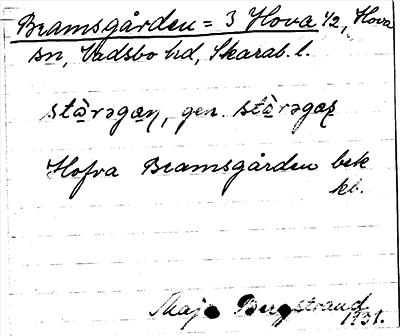 Beamsgården = 3 Hova 1/2, Hova
sn, Vadsbo hd, Skarab. l.
stὰrəgæɳ, gen. stὰrəgæʂ
Hofva Beamsgården bek
kl.
Maja Bergstrand
1931.